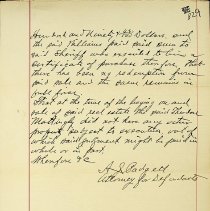 829
Hundred and Ninety & No/ Dollars, and
the said Williams paid said sum to
said Sheriff who executed to him a
certificate of purchase therefor, that
there has been no redemption from
said sale and the same remains in
full force.
That at the time of the levying on and
sale of said real estate the said
Mattingly did not have any other
property subject to execution, out of
which said judgment might be paid in
whole or in part,
Wherefore &c
A. J. Padgett
Attorney for Defendants